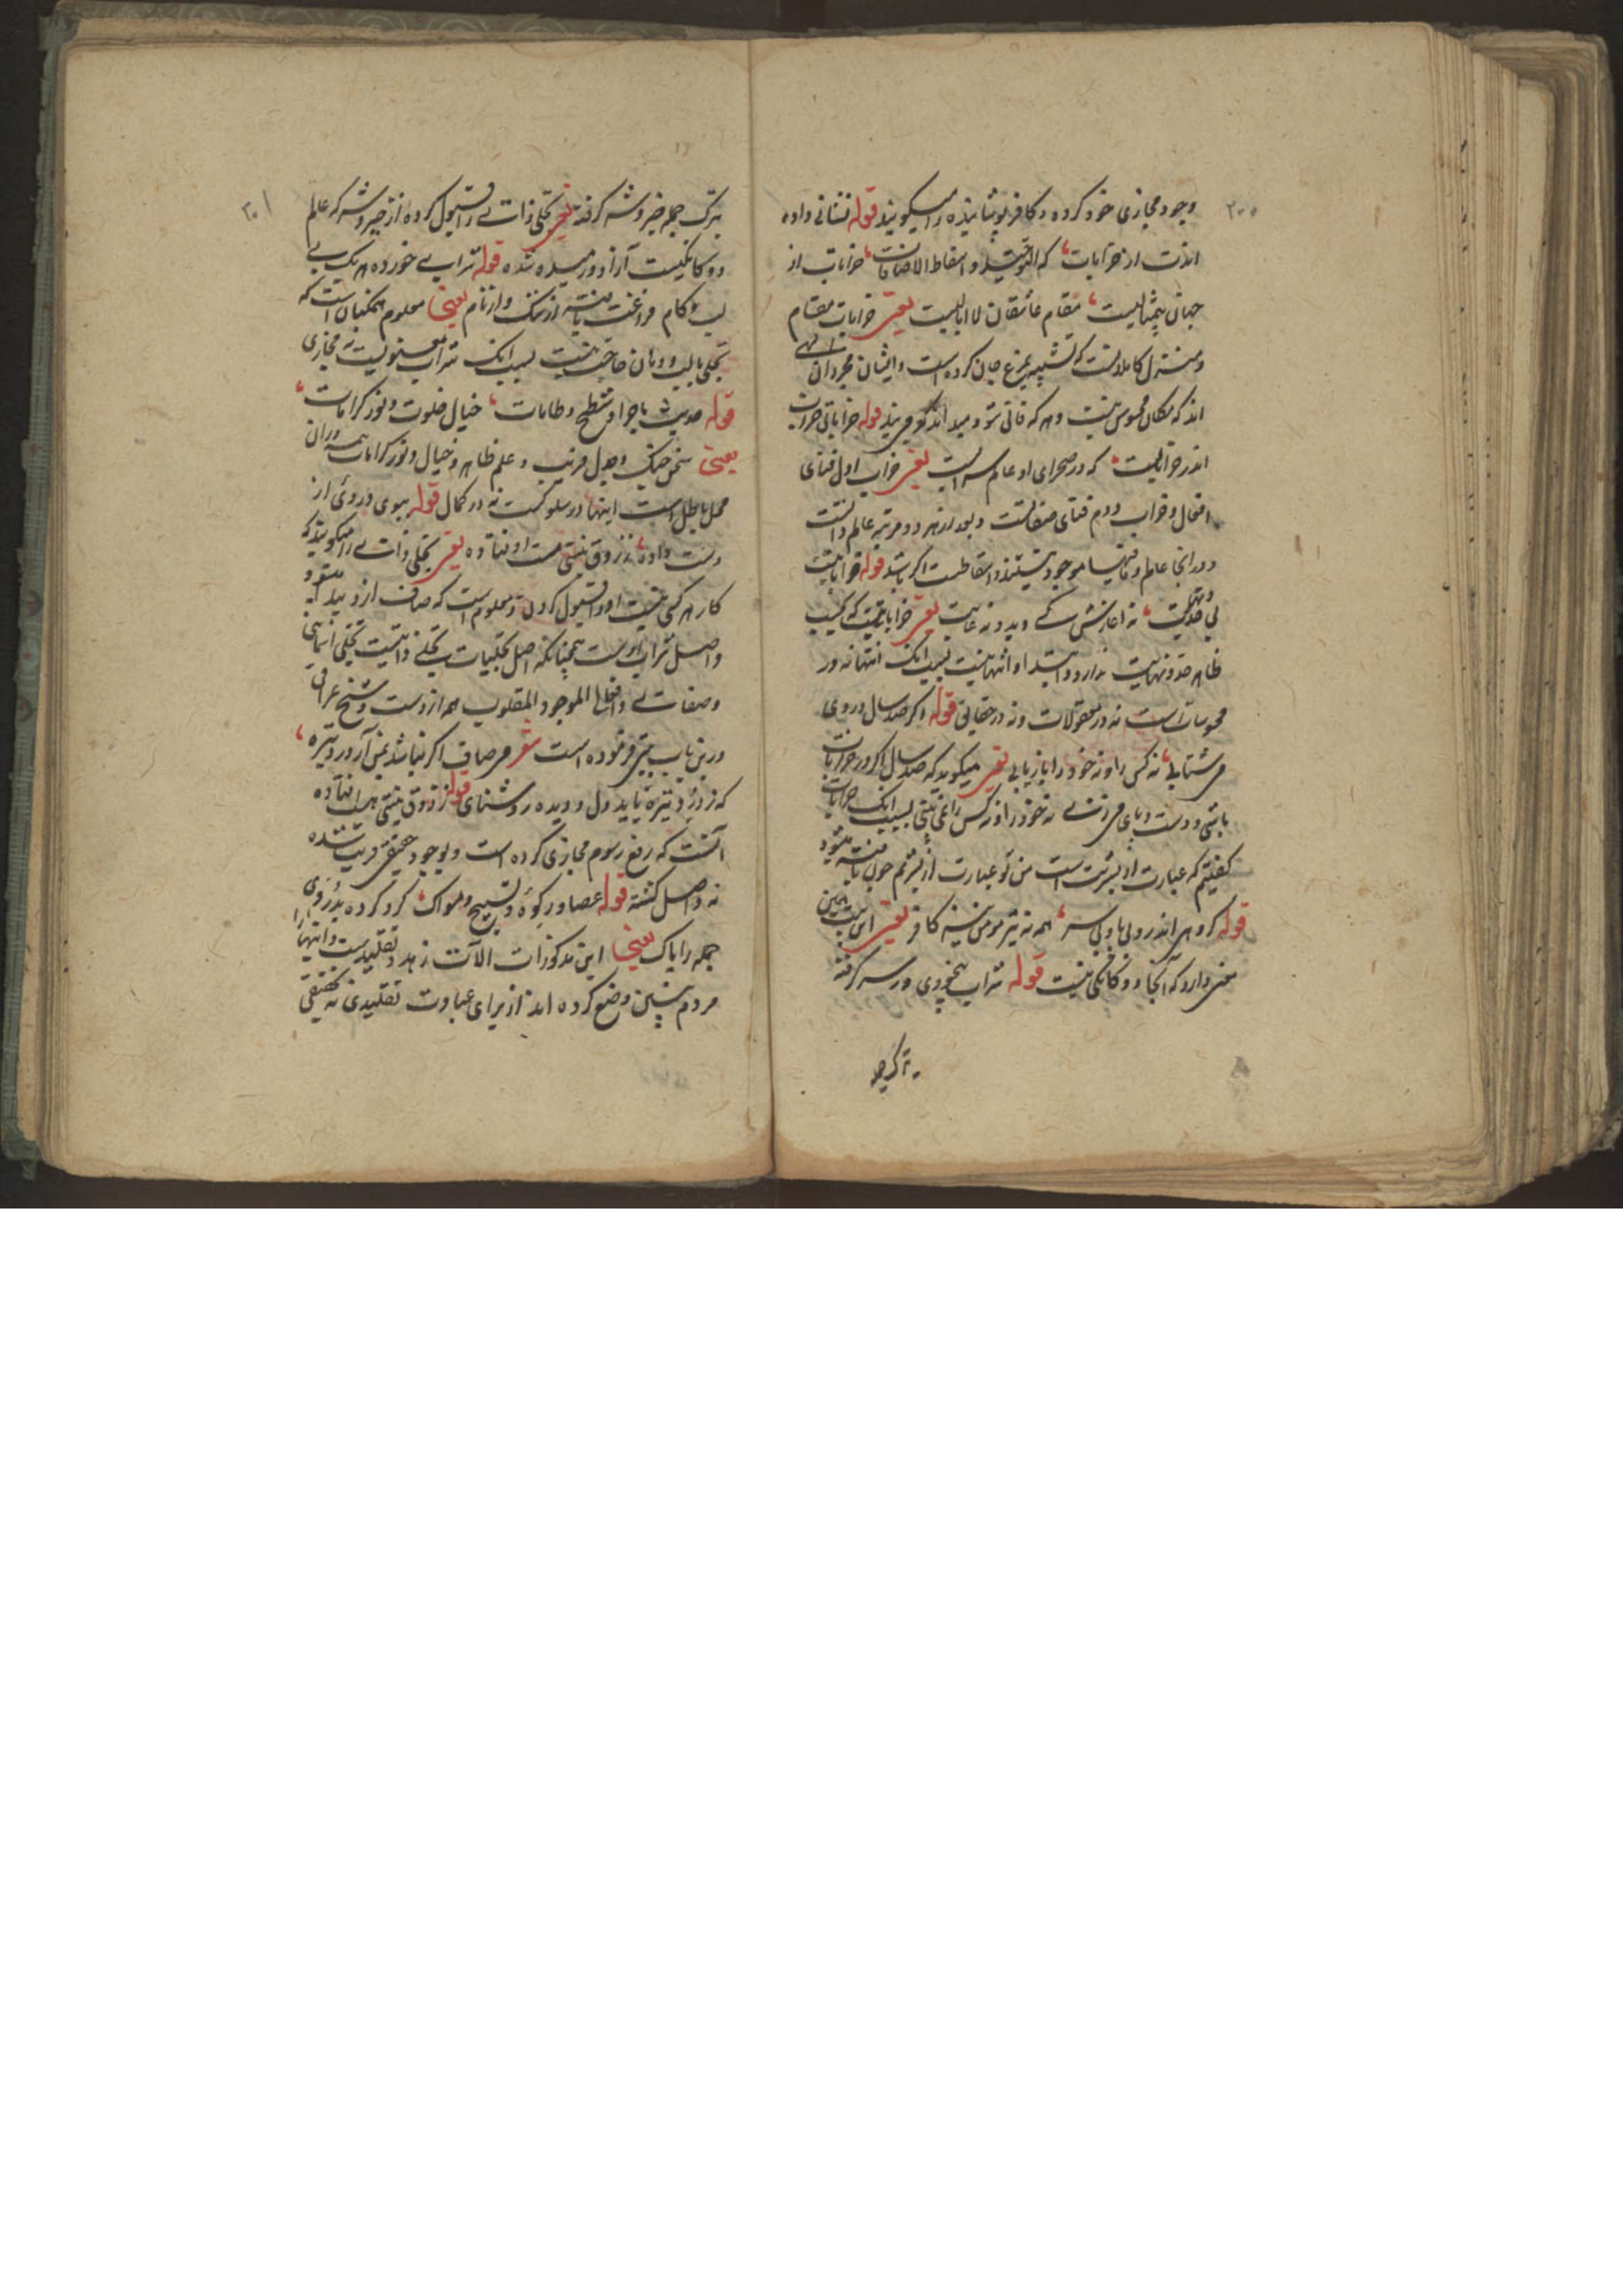 ۲۰۰
وجود مجازی خود کرده و کافر پوشانیده را میکویند قوله نشانی داده
اندت از خرابات که التوحید اسقاط الاضافات خرابات از
جهان بیمثالیست مقام عاشقان لاابالیست یعنی خرابات مقام
و منزل کاملانست که تشبیه بمرغ جان کرده است و ایشان مجردان
اند که مکان محسوس نیست و هر که فانی شود میداند قوله خراباتی خراب
اندر خرابیست که در صحرای او عالم سرابیست یعنی خراب اول فنای
افعال و خراب دوم فنای صفاتست و بعد از هر دو مرتبه عالم
در انجا عالم موجود نیستند اکر باشد قوله خراباتیست
بی حد و نهایت نه اغازش کسی دیده نه غایت یعنی خراباتیست که
ظاهر حد و نهایت ندارد و ابتدا و انتها نیست بسبب انکه انتها نه در
محسوسات است نه در معقولات و نه در حقایق قوله اکر صد سال در وی
می شتابی نه کس را و نه خود را بازیابی یعنی میکوید که صد سال اکر در خرابات
باشی و دست و پای می زنی نه خود را و نه کس را نمی یابی بسبب انکه خرابات
کفتیم که عبارت از نیستیست من و تو عبارت از
قوله کروهی اندر و بی پا و بی سر همه نه مومن و نه نیز کافر یعنی این بیت همین
معنی دارد که انجا دوکانکی نیست قوله شراب بیخودی در سر کرفته
۲۰۱
بترک جمله خیر و شر کرفته یعنی تجلی ذات را قبول کرده از خیر و شر که عالم
دوکانکیست آزاد و رمیده شده قوله شرابی خورده هر یک بی
لب و کام فراغت یافته از ننک و از نام یعنی معلوم همکنان است که
تجلی بالب و دهان حاجت نیست بسبب انکه شراب معنویست نه مجازی
قوله حدیث ماجرای شطح و طامات خیال خلوت و نور کرامات
یعنی سخن جنک و علم ظاهر و خیال و نور کرامات همه در ان
محل باطل است اینها در سلوکست نه در کمال قوله ببوی دردی از
دست داده ز ذوق نیستی مست اوفتاده یعنی تجلی ذات را میکوید که
کار هر کس نیست او را قبول کردن و معلوم است که صاف از درد پیدا میشود
و اصل شراب اوست همچنانکه اصل تجلیات تجلی ذاتیست تجلی اسمایی
و صفاتی و افعالی الموجود المقلوب همه از دست و شیخ عراقی
درین باب بیتی فرموده است شعر می صاف اکر نباشد بمن آر درد تیره
که ز درد تیره یابد دل و دیده روشنایی قوله ز ذوق نیستی مست افتاده
آنست که رفع رسوم مجازی کرده است و بوجود حقیقی قریب شده
نه واصل کشته قوله عصا و رکوه و تسبیح و مسواک کرو کرده بدردی
جمله را پاک یعنی این مذکورات الات زهد و تقلیدست و اینها را
مردم پیشین وضع کرده اند از برای عبادت تقلیدی نه تحقیقی